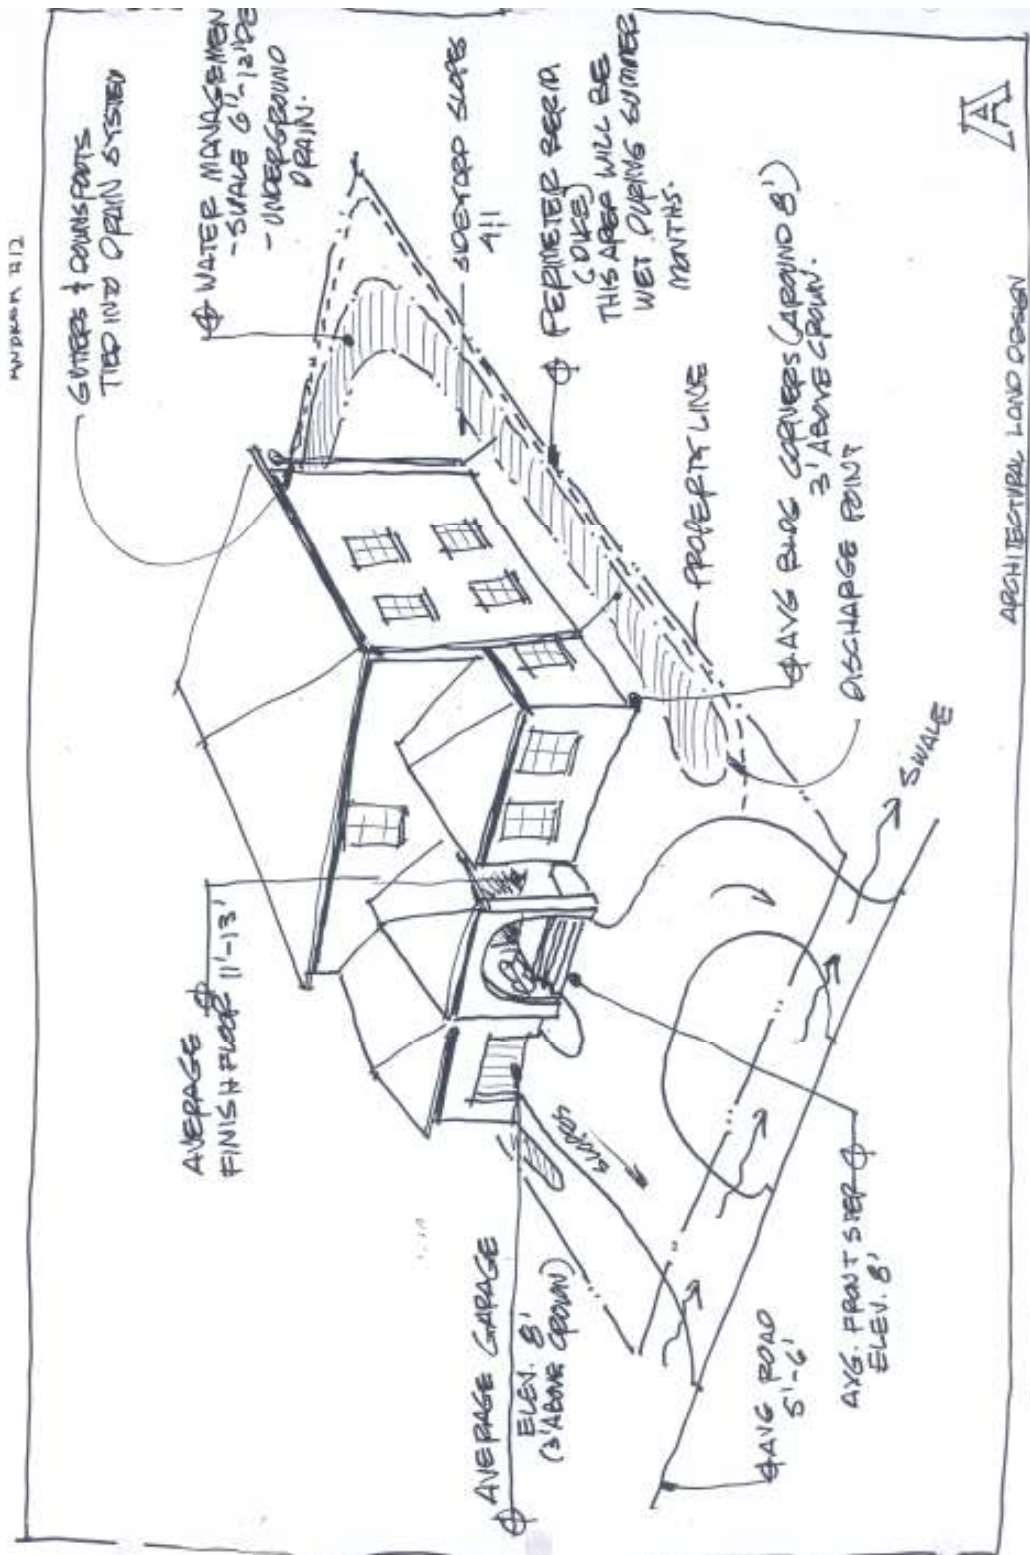 GUTTERS & DOWNSPOUTS
TIED INTO DRAIN SYSTEM
WATER MANAGEMEN
- SWALE 6"-12" DE
- UNDERGROUND
DRAIN.
SIDEYARD SLOPES
4:1
PERIMETER BERM
(DIKE)
THIS AREA WILL BE
WET DURING SUMMER
MONTHS.
PROPERTY LINE
AVG BLDG CORNERS (AROUND 8')
3' ABOVE CROWN.
DISCHARGE POINT
SWALE
AVERAGE
FINISH FLOOR 11'-13'
AVERAGE GARAGE
ELEV. 8'
(3' ABOVE CROWN)
SLOPES
AVG ROAD
5'-6'
AVG. FRONT STEP
ELEV. 8'
A
ARCHITECTURAL LAND DESIGN